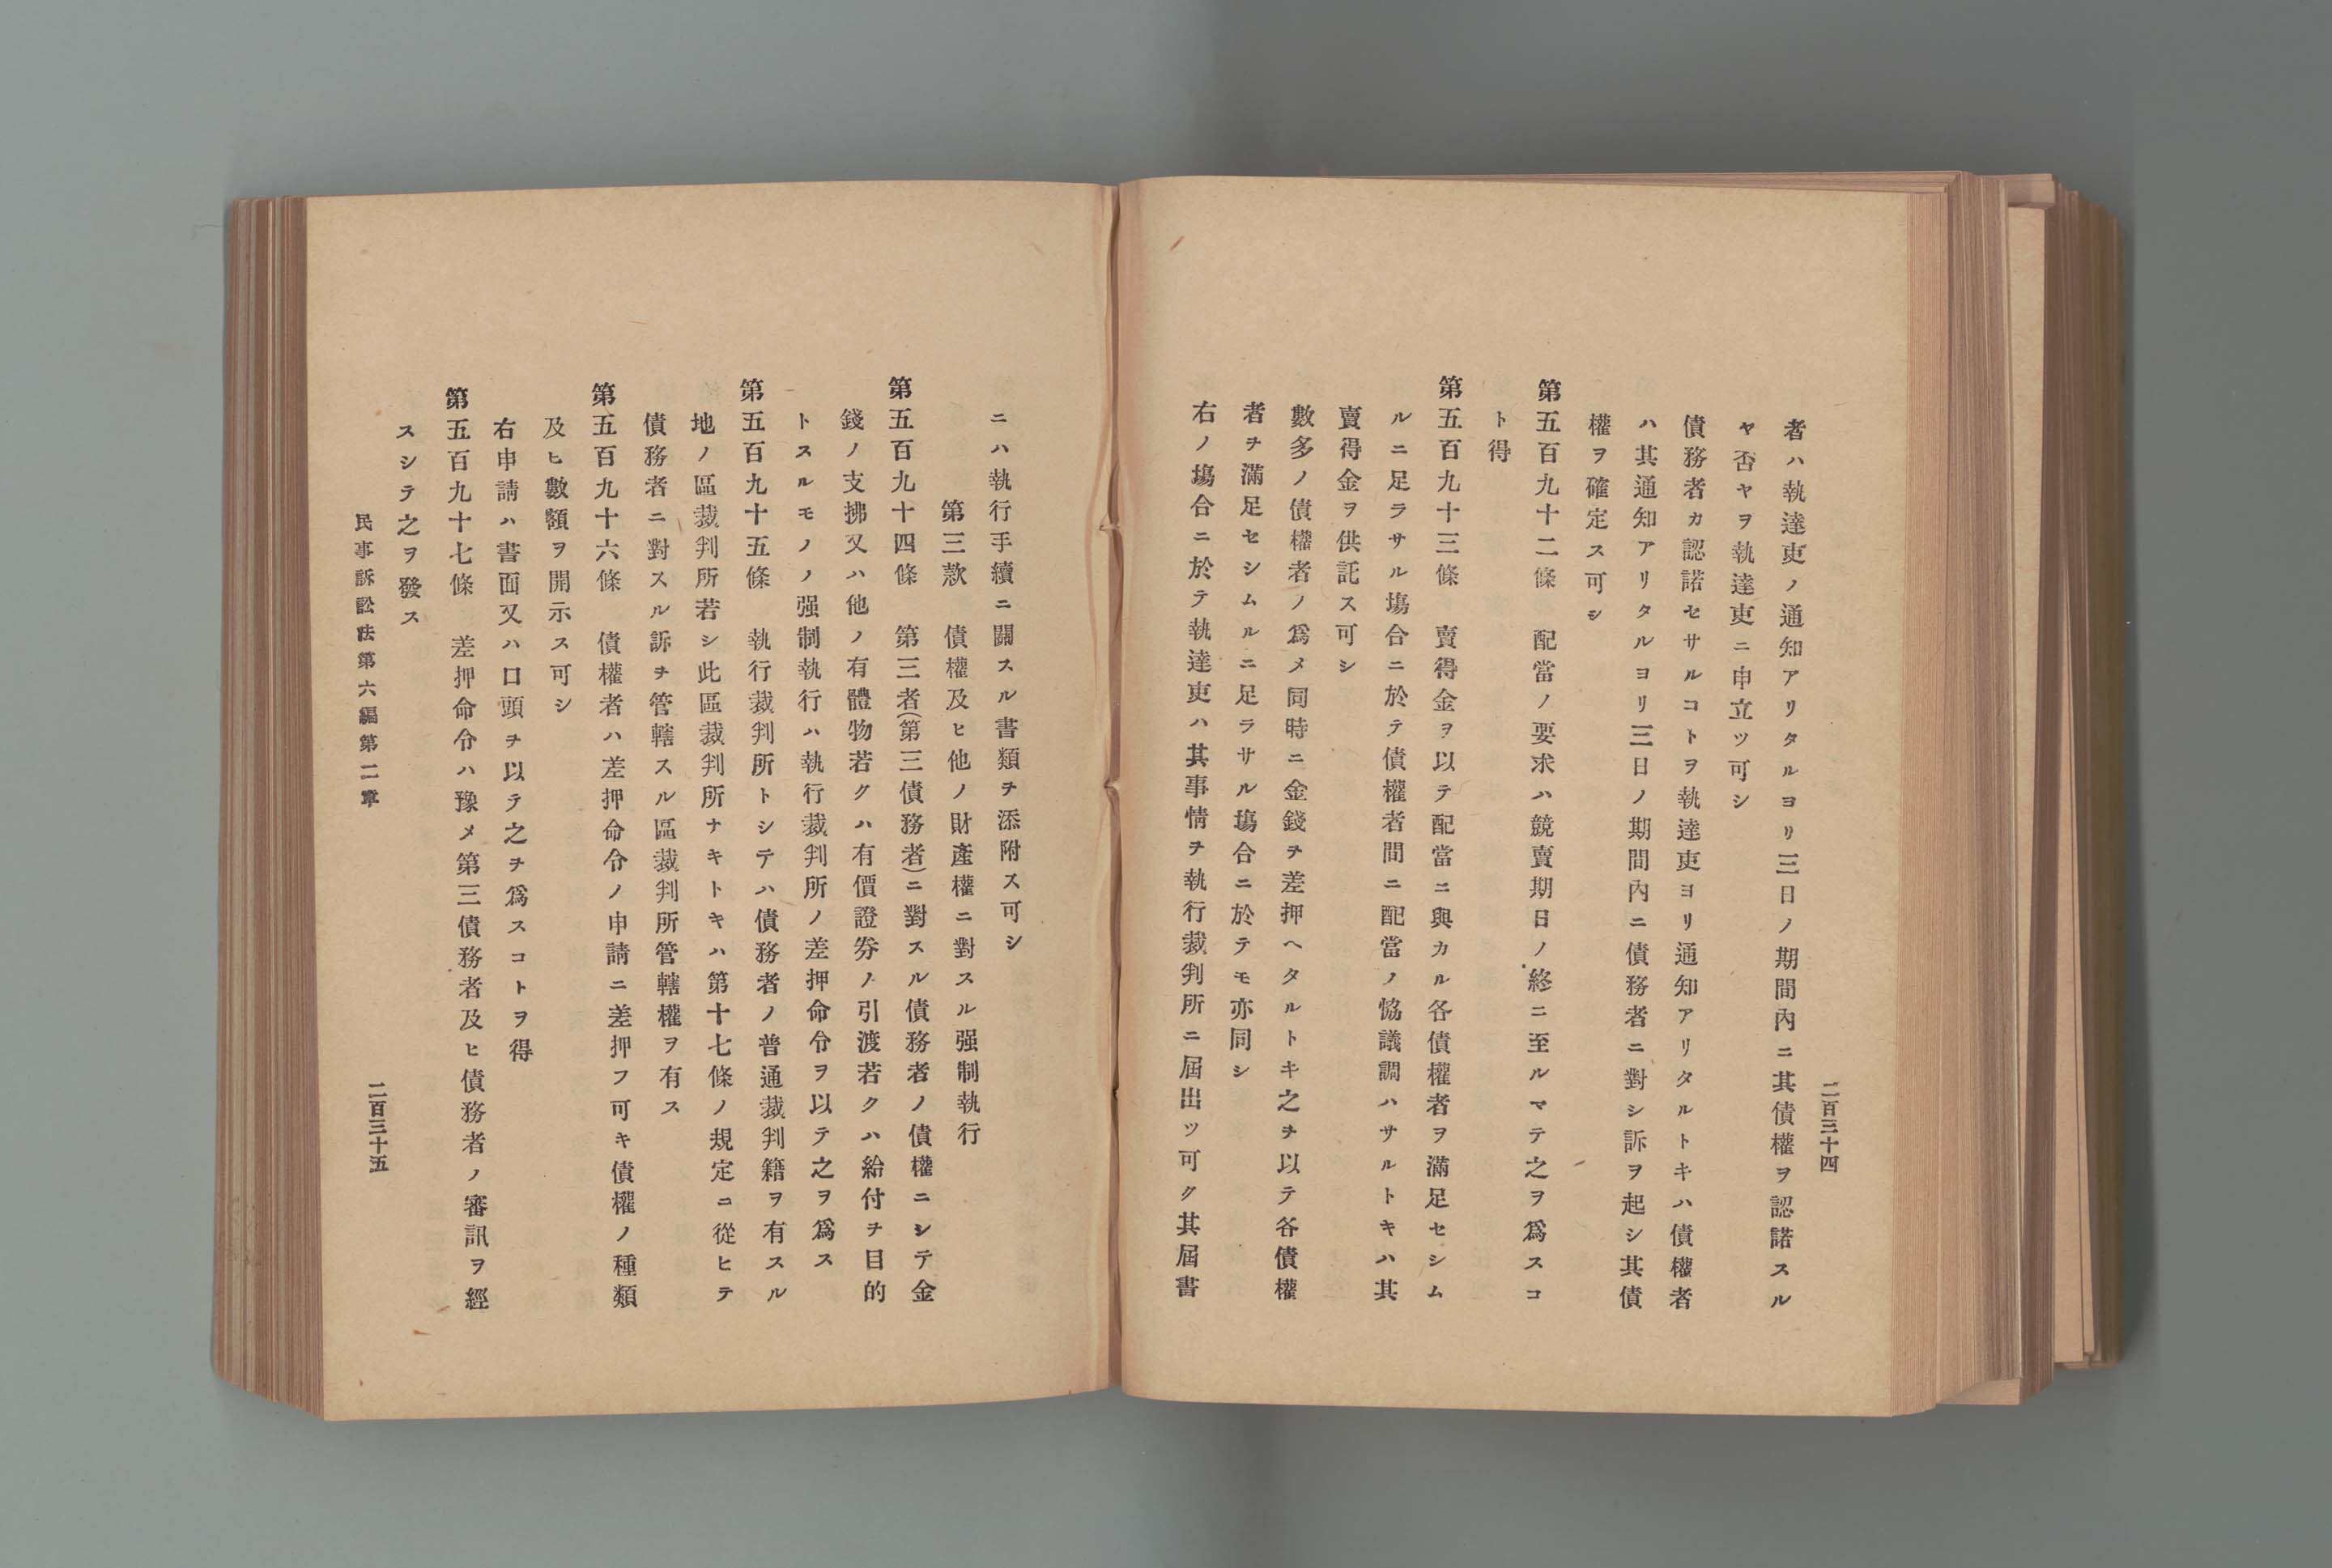 二百三十四
者ハ執達吏ノ通知アリタルヨリ三日ノ期間內ニ其債權ヲ認諾スル
ヤ否ヤヲ執達吏ニ申立ツ可シ
債務者カ認諾セサルコトヲ執達吏ヨリ通知アリタルトキハ債權者
ハ其通知アリタルヨリ三日ノ期間內ニ債務者ニ對シ訴ヲ起シ其債
權ヲ確定ス可シ
第五百九十二條　配當ノ要求ハ競賣期日ノ終ニ至ルマテ之ヲ爲スコ
ト得
第五百九十三條　賣得金ヲ以テ配當ニ與カル各債權者ヲ滿足セシム
ルニ足ラサル塲合ニ於テ債權者間ニ配當ノ恊議調ハサルトキハ其
賣得金ヲ供託ス可シ
數多ノ債權者ノ爲メ同時ニ金錢ヲ差押ヘタルトキ之ヲ以テ各債權
者ヲ滿足セシムルニ足ラサル塲合ニ於テモ亦同シ
右ノ塲合ニ於テ執達吏ハ其事情ヲ執行裁判所ニ屆出ツ可ク其屆書
ニハ執行手續ニ關スル書類ヲ添附ス可シ
第三欵　債權及ヒ他ノ財產權ニ對スル强制執行
第五百九十四條　第三者(第三債務者)ニ對スル債務者ノ債權ニシテ金
錢ノ支拂又ハ他ノ有體物若クハ有價證券ノ引渡若クハ給付ヲ目的
トスルモノノ强制執行ハ執行裁判所ノ差押命令ヲ以テ之ヲ爲ス
第五百九十五條　執行裁判所トシテハ債務者ノ普通裁判籍ヲ有スル
地ノ區裁判所若シ此區裁判所ナキトキハ第十七條ノ規定ニ從ヒテ
債務者ニ對スル訴ヲ管轄スル區裁判所管轄權ヲ有ス
第五百九十六條　債權者ハ差押命令ノ申請ニ差押フ可キ債權ノ種類
及ヒ數額ヲ開示ス可シ
右申請ハ書面又ハ口頭ヲ以テ之ヲ爲スコトヲ得
第五百九十七條　差押命令ハ豫メ第三債務者及ヒ債務者ノ審訊ヲ經
スシテ之ヲ發ス
民事訴訟法第六編第二章
二百三十五